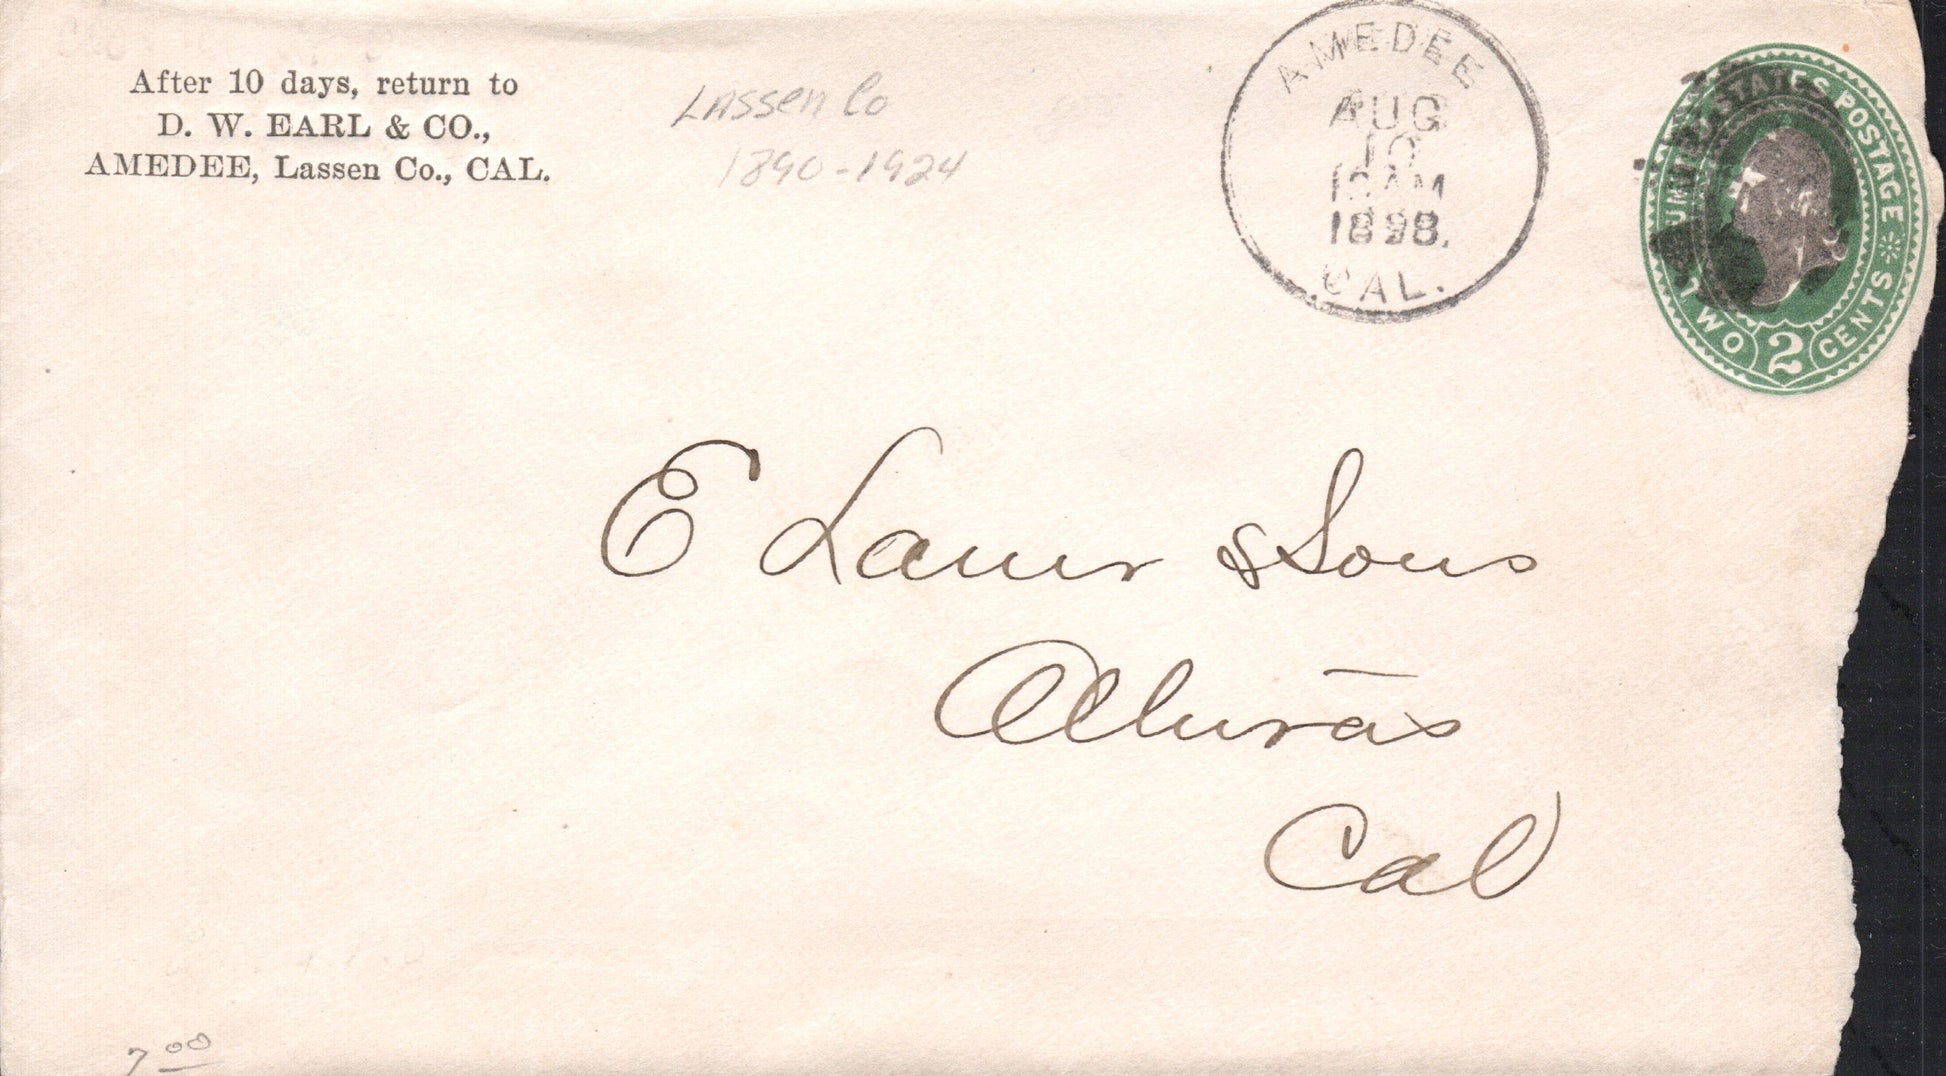 After 10 days, return to
D. W. EARL & CO.,
AMEDEE, Lassen Co., CAL.
Lassen Co
1890-1924
AMEDEE
AUG
10
AM
1898.
CAL.
UNITED STATES POSTAGE
TWO 2 CENTS
E Lauer & Sons
Alturas
Cal
7 00